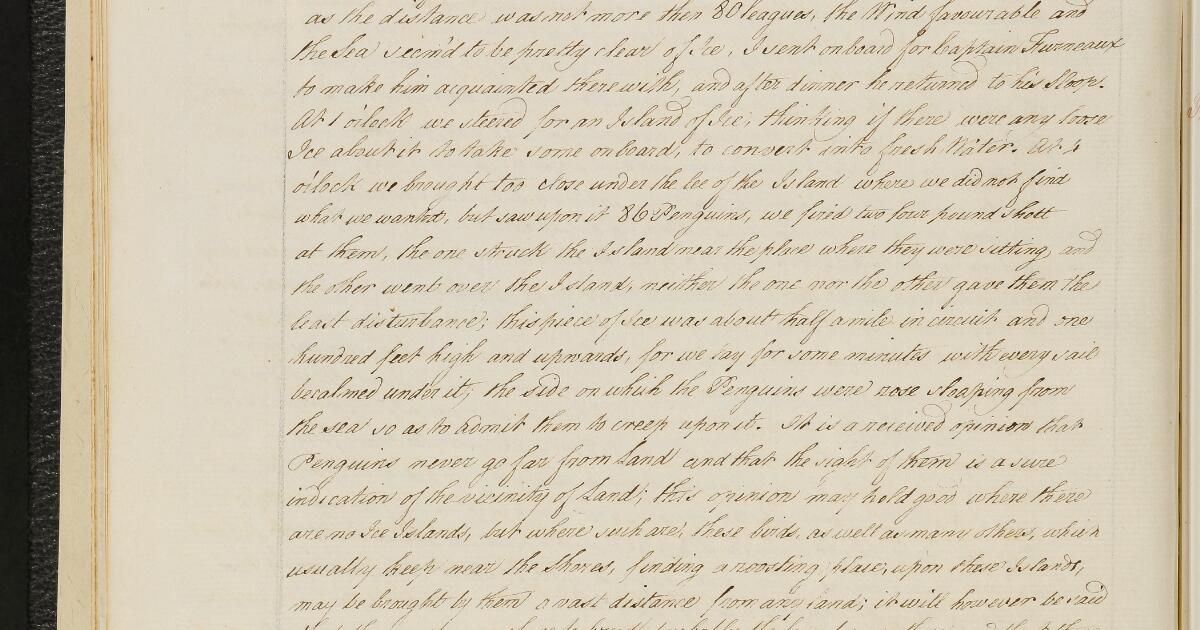 as the distance was not more then 80 leagues, the Wind favourable and
the Sea seem'd to be pretty clear of Ice, I sent onboard for Captain Furneaux
to make him acquainted therewith, and after dinner he returned to his Sloop.
At 1 o'clock we steered for an Island of Ice; thinking if there were any loose
Ice about it to take some onboard, to convert into fresh Water. At 4
o'clock we brought too close under the lee of the Island where we did not find
what we wanted, but saw upon it 86 Penguins, we fired two four pound Shott
at them, the one struck the Island near the place where they were sitting and
the other went over the Island, neither the one nor the other gave them the
least disturbance; this piece of Ice was about half a mile in circuit and one
hundred feet high and upwards, for we lay for some minutes with every sail
becalmed under it; the side on which the Penguins were rose sloaping from
the sea so as to admit them to creep upon it. It is a received opinion that
Penguins never go far from land and that the sight of them is a sure
indication of the vicinity of Land; this opinion may hold good where there
are no Ice Islands, but where such are, these birds, as well as many others, which
usually keep near the Shores, finding a roosting place, upon these Islands,
may be brought by them a vast distance from any land; it will however be said